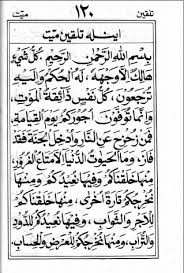 تلقين ١٢٠ ميّت
اينيله تلقين ميّت
بِسْمِ اللهِ الرَّحْمٰنِ الرَّحِيْمِ، كُلُّ شَيْءٍ
هَالِكٌ إِلَّا وَجْهَهُ، لَهُ الْحُكْمُ وَإِلَيْهِ
تُرْجَعُوْنَ، كُلُّ نَفْسٍ ذَائِقَةُ الْمَوْتِ،
وَإِنَّمَا تُوَفَّوْنَ أُجُوْرَكُمْ يَوْمَ الْقِيَامَةِ،
فَمَنْ زُحْزِحَ عَنِ النَّارِ وَأُدْخِلَ الْجَنَّةَ فَقَدْ
فَازَ، وَمَا الْحَيٰوةُ الدُّنْيَا إِلَّا مَتَاعُ الْغُرُوْرِ،
مِنْهَا خَلَقْنَاكُمْ وَفِيْهَا نُعِيْدُكُمْ وَمِنْهَا
نُخْرِجُكُمْ تَارَةً أُخْرٰى، مِنْهَا خَلَقْنَاكُمْ
لِلْأَجْرِ وَالثَّوَابِ، وَفِيْهَا نُعِيْدُكُمْ لِلدُّوْدِ
وَالتُّرَابِ، وَمِنْهَا نُخْرِجُكُمْ لِلْعَرْضِ وَالْحِسَابِ،